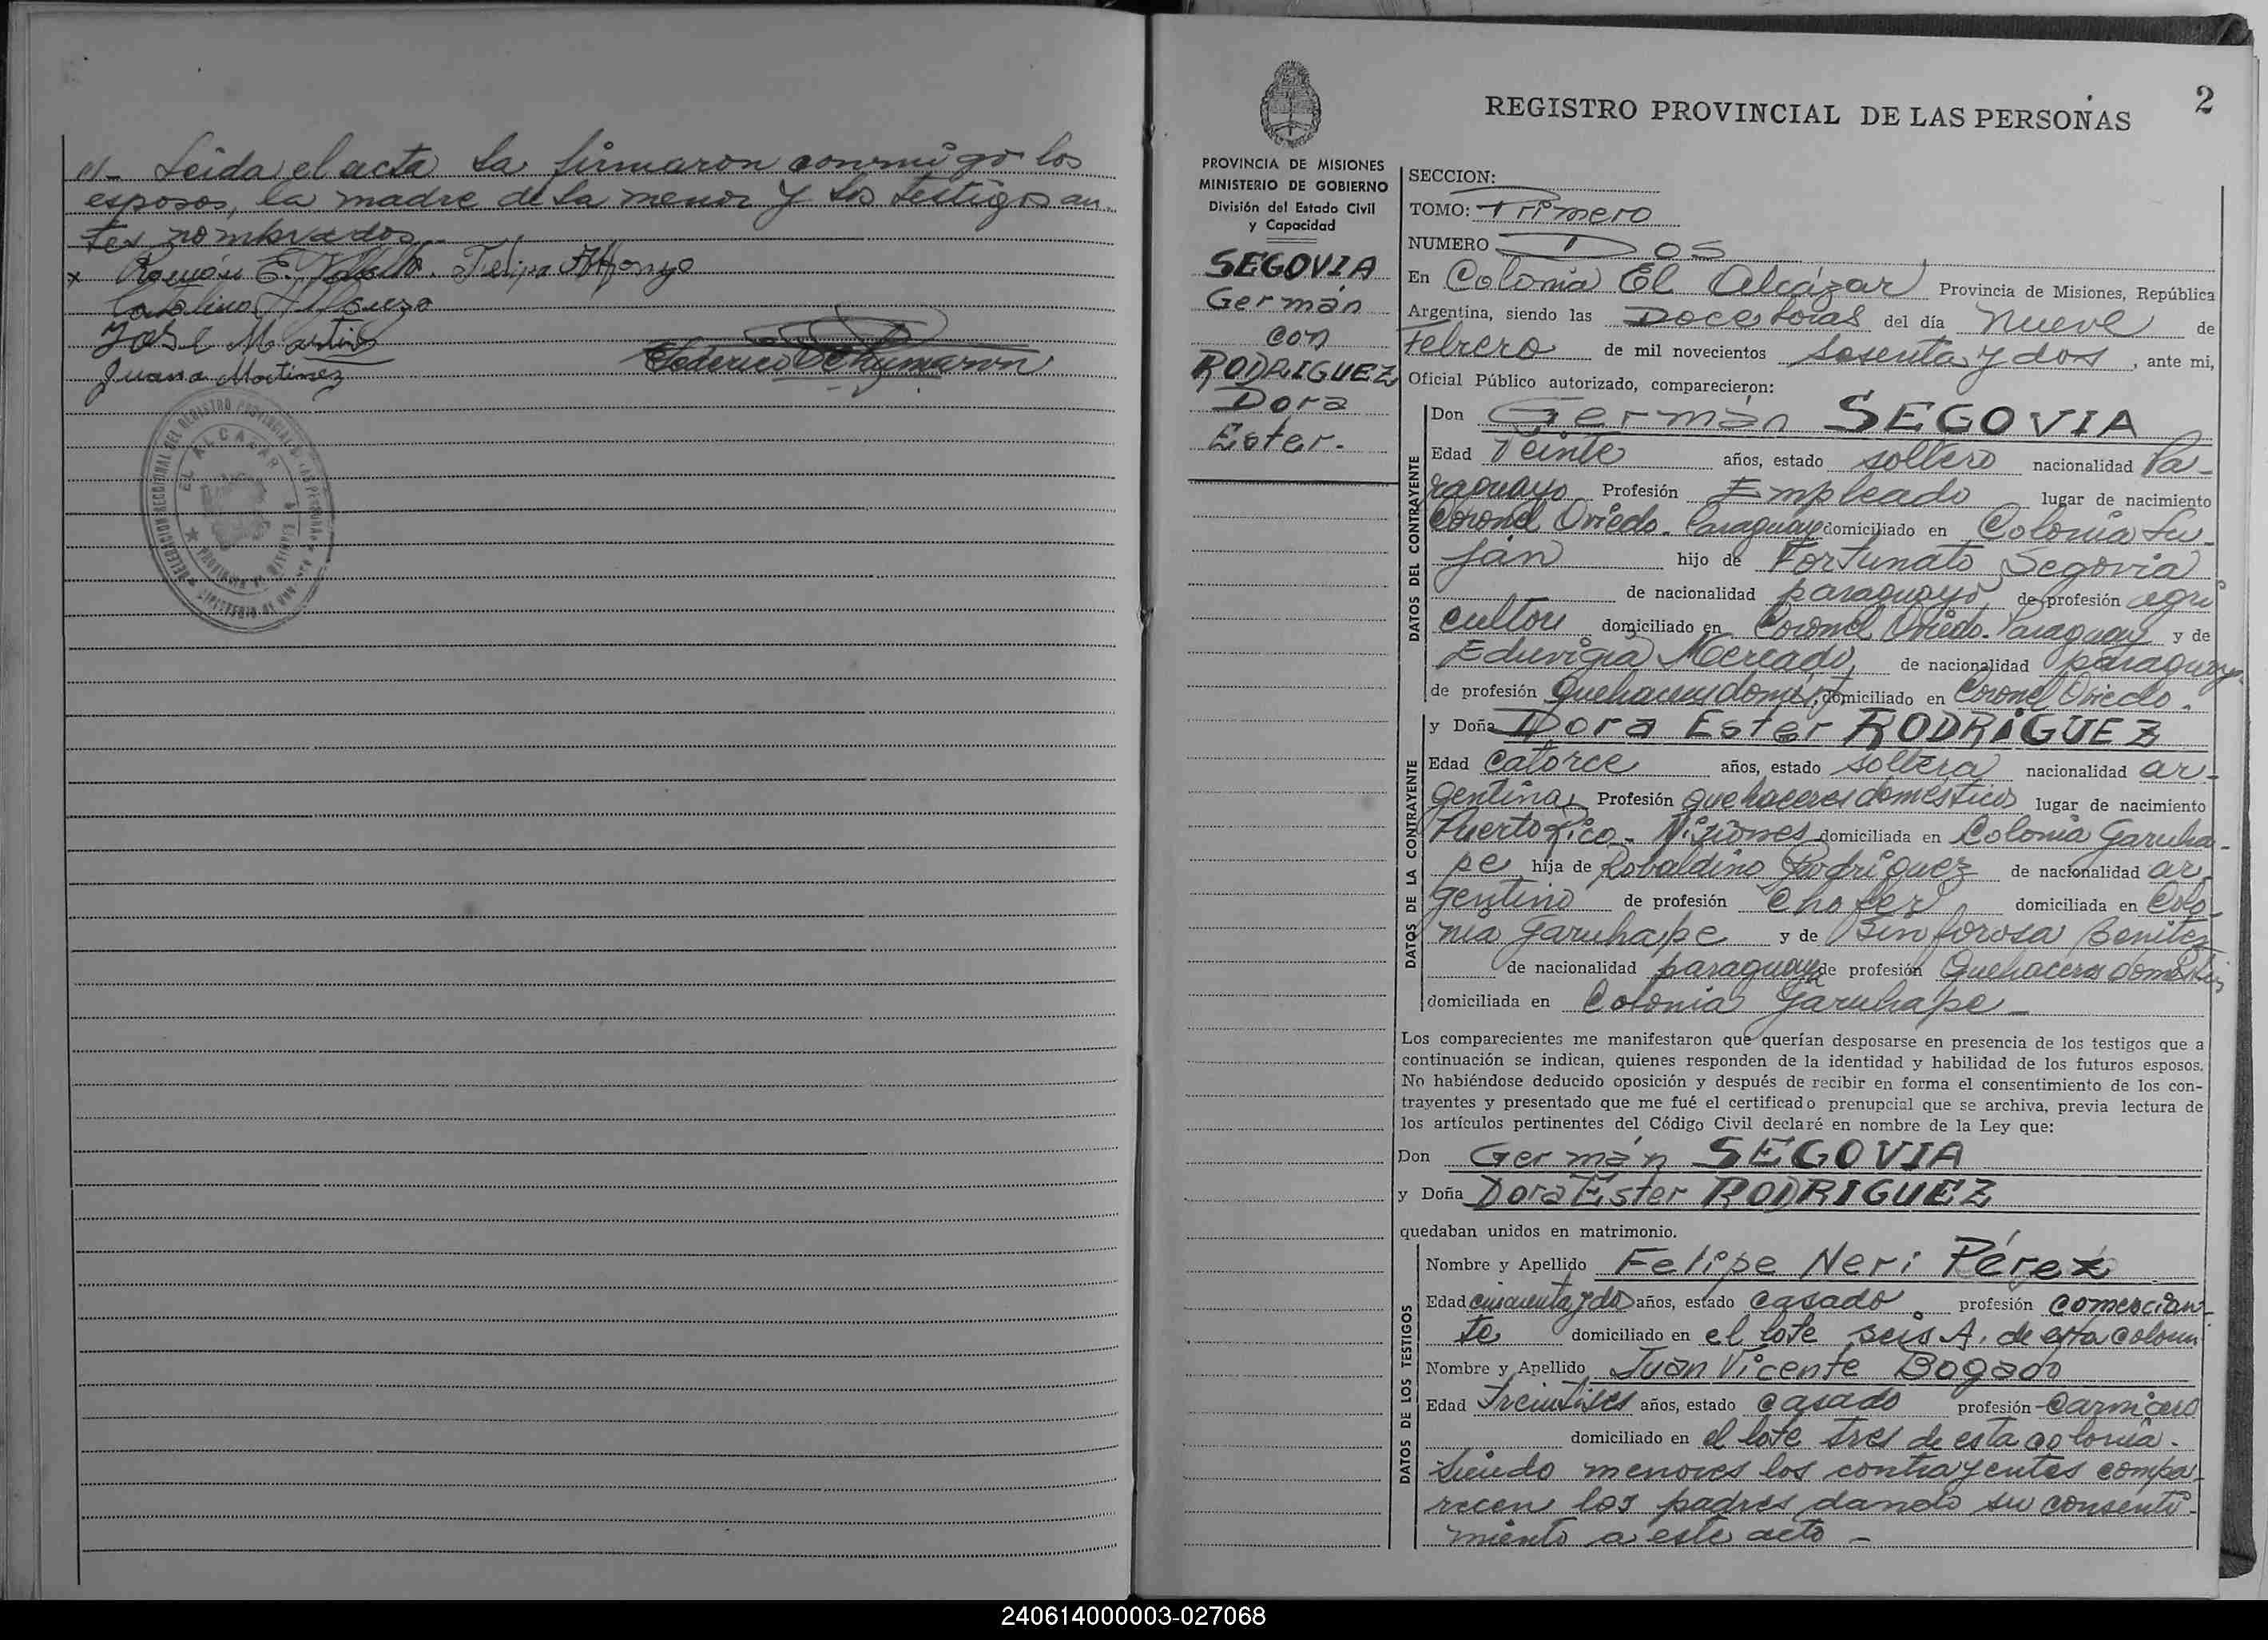 Leida el acta la firmaron conmigo los
esposos, la madre de la menor y los testigos an-
tes nombrados.
x Ramón E.
José Martinez
Juana Martinez
EL ALCAZAR
2
REGISTRO PROVINCIAL DE LAS PERSONAS
PROVINCIA DE MISIONES
MINISTERIO DE GOBIERNO
División del Estado Civil
y Capacidad
SEGOVIA
Germán
con
RODRIGUEZ
Dora
Ester.-
SECCION:
TOMO: Primero
NUMERO Dos
En Colonia El Alcázar Provincia de Misiones, República
Argentina, siendo las Doce horas del día nueve de
Febrero de mil novecientos sesenta y dos, ante mi,
Oficial Público autorizado, comparecieron:
DATOS DEL CONTRAYENTE
Don Germán SEGOVIA
Edad Veinte años, estado soltero nacionalidad Pa-
raguayo Profesión Empleado lugar de nacimiento
Coronel Oviedo. Paraguay domiciliado en Colonia Lu-
ján hijo de Fortunato Segovia
de nacionalidad paraguayo de profesión agri
cultor domiciliado en Coronel Oviedo. Paraguay y de
Eduvigia Mercado, de nacionalidad paraguaya
de profesión Quehaceres domést, domiciliado en Coronel Oviedo.
DATOS DE LA CONTRAYENTE
y Doña Dora Ester RODRIGUEZ
Edad Catorce años, estado soltera nacionalidad ar-
gentina Profesión quehaceres domésticos lugar de nacimiento
Puerto Rico - Misiones domiciliada en Colonia Garuha-
pe hija de Robaldino Rodriguez de nacionalidad ar-
gentino de profesión Chofer domiciliada en Colo-
nia Garuhape y de Sinforosa Benitez
de nacionalidad paraguaya de profesión Quehaceres domésticos
domiciliada en Colonia Garuhape -
Los comparecientes me manifestaron que querían desposarse en presencia de los testigos que a
continuación se indican, quienes responden de la identidad y habilidad de los futuros esposos.
No habiéndose deducido oposición y después de recibir en forma el consentimiento de los con-
trayentes y presentado que me fué el certificado prenupcial que se archiva, previa lectura de
los artículos pertinentes del Código Civil declaré en nombre de la Ley que:
Don Germán SEGOVIA
y Doña Dora Ester RODRIGUEZ
quedaban unidos en matrimonio.
DATOS DE LOS TESTIGOS
Nombre y Apellido Felipe Neri Pérez
Edad cincuenta y dos años, estado casado profesión comercian-
te domiciliado en el lote seis A. de esta colonia
Nombre y Apellido Juan Vicente Bogado
Edad treintiseis años, estado casado profesión carnicero
domiciliado en el lote tres de esta colonia.
Siendo menores los contrayentes compa-
recen los padres dando su consenti-
miento a este acto -
240614000003-027068